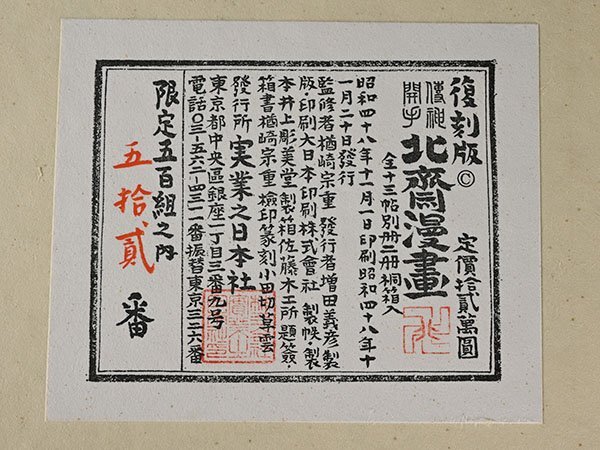 復刻版 © 定價拾貳萬圓
傳神
開手
北齋漫畫
全十三帖別冊一冊桐箱入
昭和四十八年十一月一日印刷昭和四十八年十
一月二十日發行
監修者楢崎宗重 發行者増田義彦製
版・印刷大日本印刷株式會社 製帙・製
本井上彫美堂 製箱佐藤木工所 題簽・
箱書楢崎宗重 檢印篆刻小田切草雲
發行所 実業之日本社
東京都中央區銀座一丁目三番九号
電話〇三-五六二-四三一一番振替東京三二六番
限定五百組之内
五拾貳番